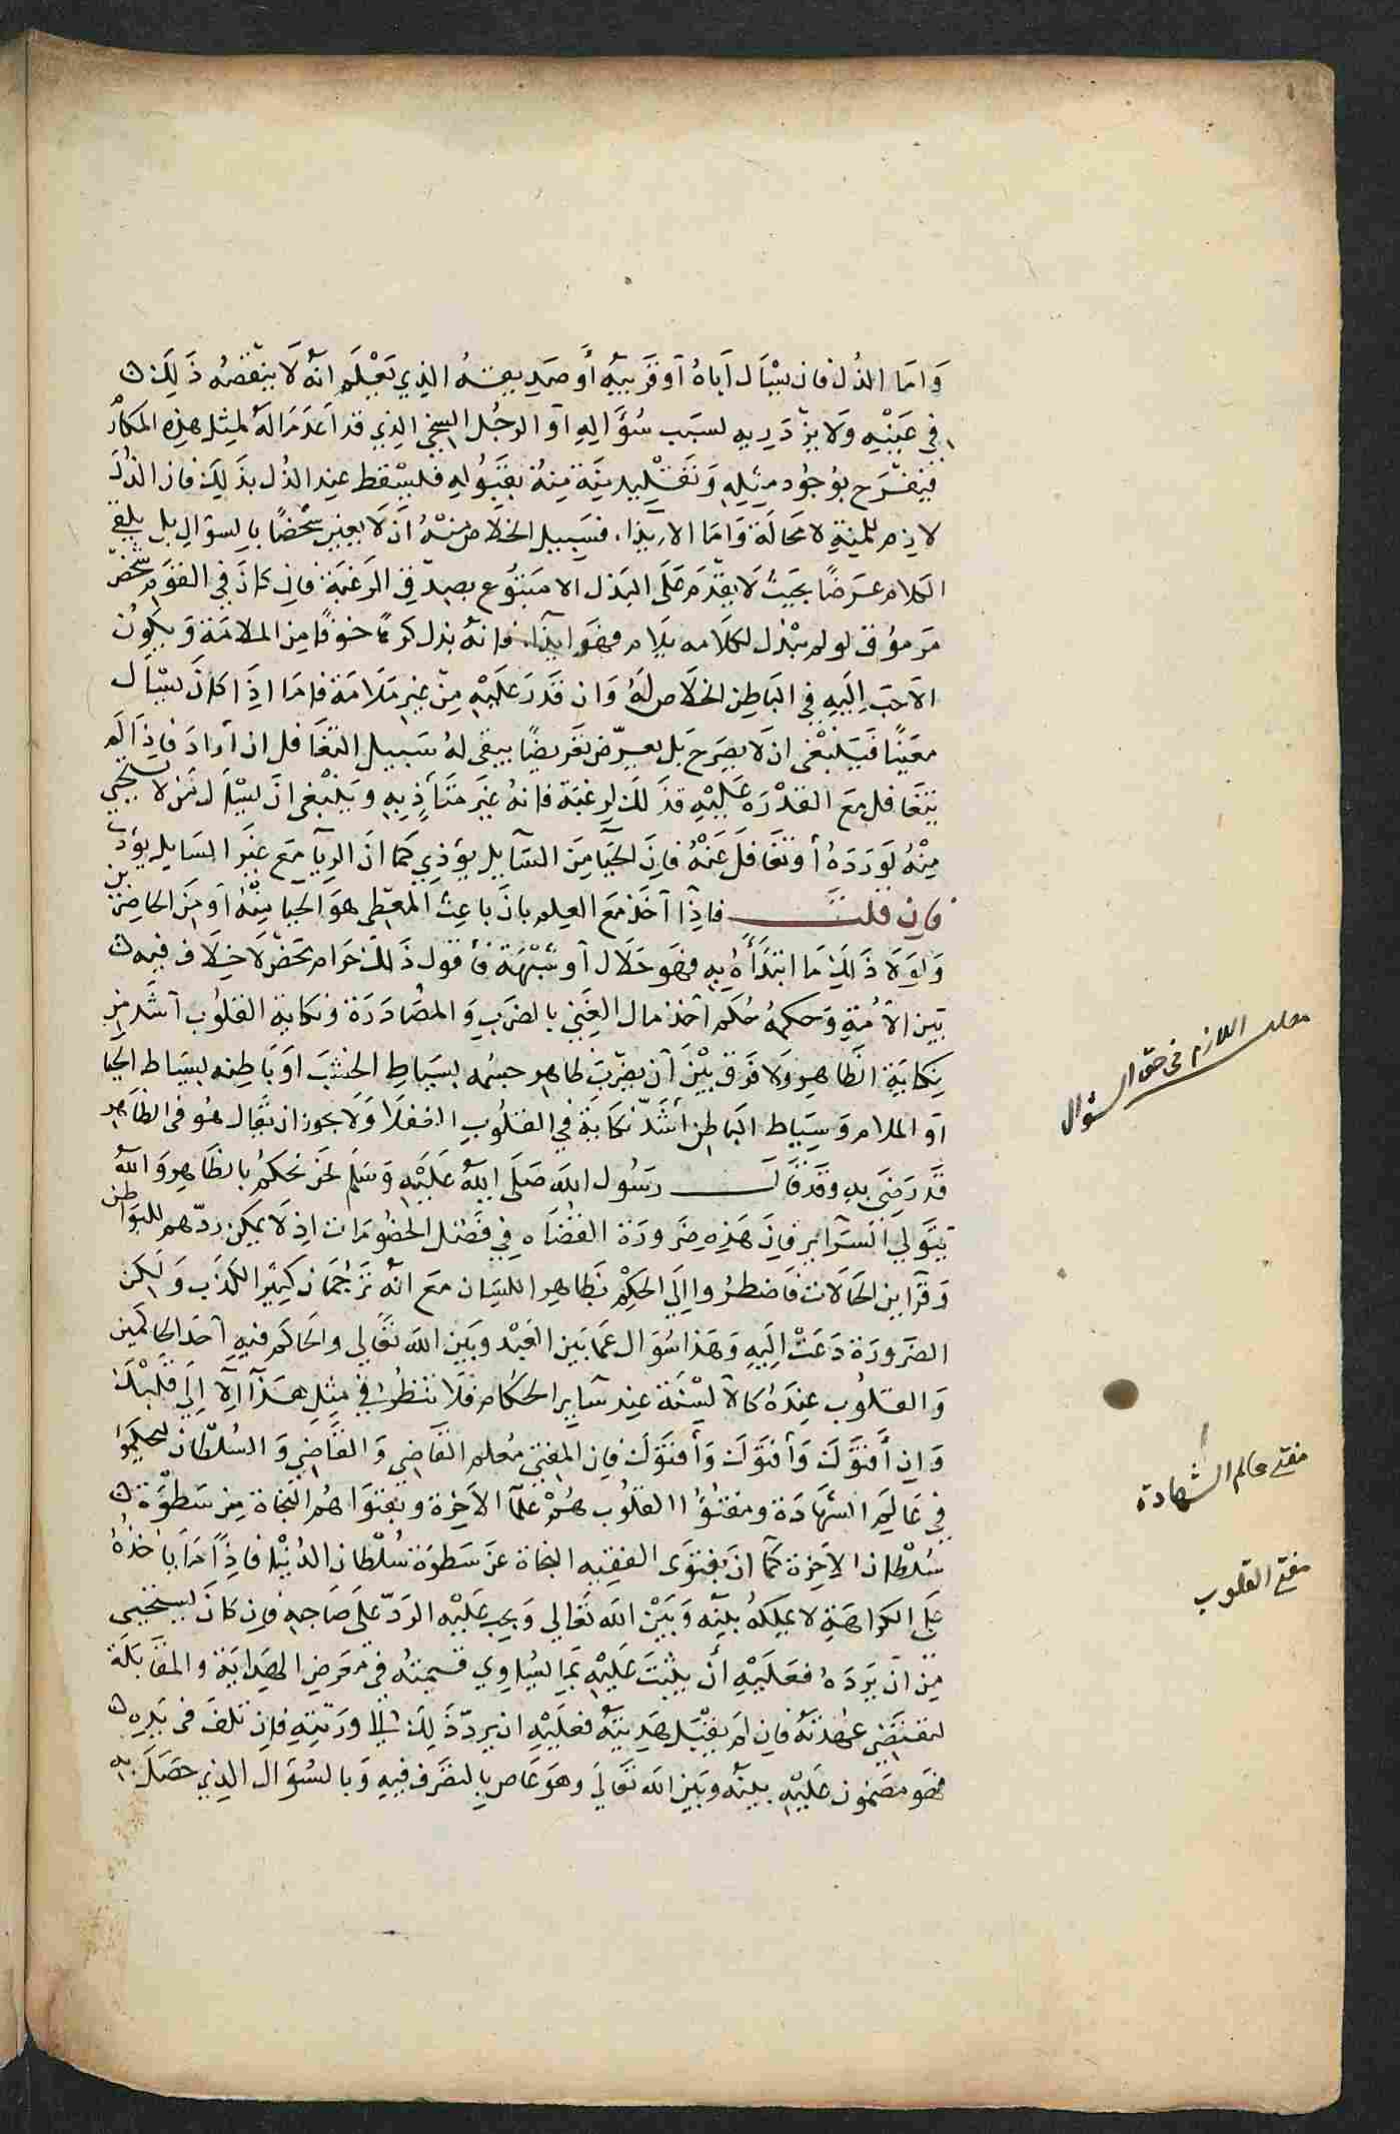 وَامَا الذُل فان يسْأل أباهُ أو قَريبهُ أو صَديقهُ الذي يَعْلَم انهُ لَا ينقصُه ذَلِكَ
في عَيْنِهِ وَلا يزْدَرِيهِ لسَبَب سُؤَالهِ أو الرجُل السخي الذي قد أعدَ مَالهُ لمِثل هذِه المكارم
فيَفْرَح بوُجُود مِثلِهِ وَتقلِيد مِنَّة مِنهُ بقبُولهِ فليسْقط عند الذُل بذَلِكَ فان الذُل
لازم للمنةِ لا محَالَة وَامَا الايذا، فسَبيل الخلاص منهُ أن لَا يعين شخصًا بالسؤال بل يلقي
الكلام عَرضًا بحَيثُ لَا يقدَم عَلَى البَذل الا مَتَبَوُع بصِدق الرَغبَة فان كانَ في القَوم شخص
مَرموُق لو لم يبْذل لكلَامه يلام فهوَ ايذا. فانهُ بذل كرهًا خوفًا من الملامَة وَيكُون
الاَحَب إليَهِ في البَاطن الخلاص لهُ وَان قَدرَ عَلَيْهِ مِن غير مَلَامَة فامَا اذَا كانَ يسأل
معَينًا فيَنْبَغي ان لَا يصَرحَ بَل يعرّض تعَريضًا يبقى لهُ سَبيل التغَافل ان أرادَ فاِذَا لَم
يتغَافل مَعَ القدْرَة عَليْهِ فذَلكَ لرغبَة فانهُ غيرَ متأذٍ بهِ وَينْبغي انَ يسْأل مَن لا يستحيي
مِنْهُ لَو رَدهُ أو تغَافَلَ عَنْهُ فانَ الحَيَا مِنَ السَائِل يؤذي كَما انَ الريآ مَع غيَر السَايل يؤذي
فان قلتَ فاذَا آخَذ مَعَ العِلم بانَ باعِث المعطِي هوَ الحَيا مِنْهُ أو منَ الحاضرين
وَلولَا ذَلِكَ مَا ابتدَأهُ بهِ فهوَ حَلَال أو شبْهَة فأقول ذَلكَ حَرام محضْ لَا خِلَاف فيه
بَين الأمةِ وَحكمهُ حُكم أخذ مال الغير بالضَربِ وَالمصَادَرَة ونكاية القلُوب أشَد مِن
نِكايَةِ الظَاهِر وَلا فَرق بيْنَ أن يضربَ ظاهر جسْمه بسَياطِ الخشبَ اوَ بَاطِنه بسِيَاط الحيا
أو الملام وَسِيَاط البَاطن أشَدّ نكايَة في القلُوب العقلَا وَلَا يجوز ان يقال هوُ في الظاهر
قَد رَضيَ بهِ وَقدَ قَالَ رسُول الله صَلَى اللهُ عَلَيْهِ وَسَلَم نحَن نحكُم بالظاهِر وَاللهُ
يتَولي السَرآير فانَ هَذِه ضَرورَة القضُاه في فَصْل الخصُومَات اذ لَا يمكِن ردّهم للبَوَاطن
وَقَرآين الحَالات فاضطرُوا اِلَي الحكم بظاهر اللسَان معَ انهُ ترَجُمان كثير الكذَب وَلَكن
الضَرورَة دَعَتْ اِليَهِ وَهَذا سُؤال عَما بَين العَبْد وَبَين الله تَعَالي والحَاكم فيهِ أحكَم الحاكمين
وَالقلُوب عِندَهُ كالألسِنَة عِند سَآير الحكام فلَا تنظُر في مِثل هذَآ اِلآ اِلَي قلبكَ
وَاِن أَفتَوَكَ وَأفتَوَكَ وَأفتَوَكَ فان المفتي معُلم القَاضِي وَالقاضِي وَالسُلطَان ليحكموا
في عَالم الشَهَادَة ومفتوُا القلوُب هُمْ عُلمآ الآخِرَة وبفتوَاهُم النجاة مِن سَطوَّة
سُلطان الآخِرَة كمَا انَ بفَتوَى الفقيه النجاة عَن سَطوَة سُلطان الدُنْيَا فاذًا مَا ياخذُهُ
علَى الكراهَةِ لا يملِكهُ بَينه وَبَيْن الله تَعَالي وَيجب عَليْه الردّ علَى صَاحِبهِ فإن كانَ يستحيي
مِن أن يَردَهُ فعَلَيْهِ أن يثبْتَ عَلَيْهِ بمَا يسُاوِي قيمتهُ في مَعرض الهدايَة والمقَابَلَة
لتقتضِي عهدَتهُ فان لَم يقبْلَ هَديتهُ فعليْهِ ان يردّ ذَلِكَ الِي ورَثتِهِ فإن تلفَ في يَدهِ
فهَو مضَمون عَليْهِ بينَهُ وَبَين الله تَعالي وهوَ عَاص بالتصَرف فيِهِ وَبالسُؤال الذِي حَصَلَ به
اللازم في حق السؤال
مفتي عالم الشهادة
مفتي القلوب